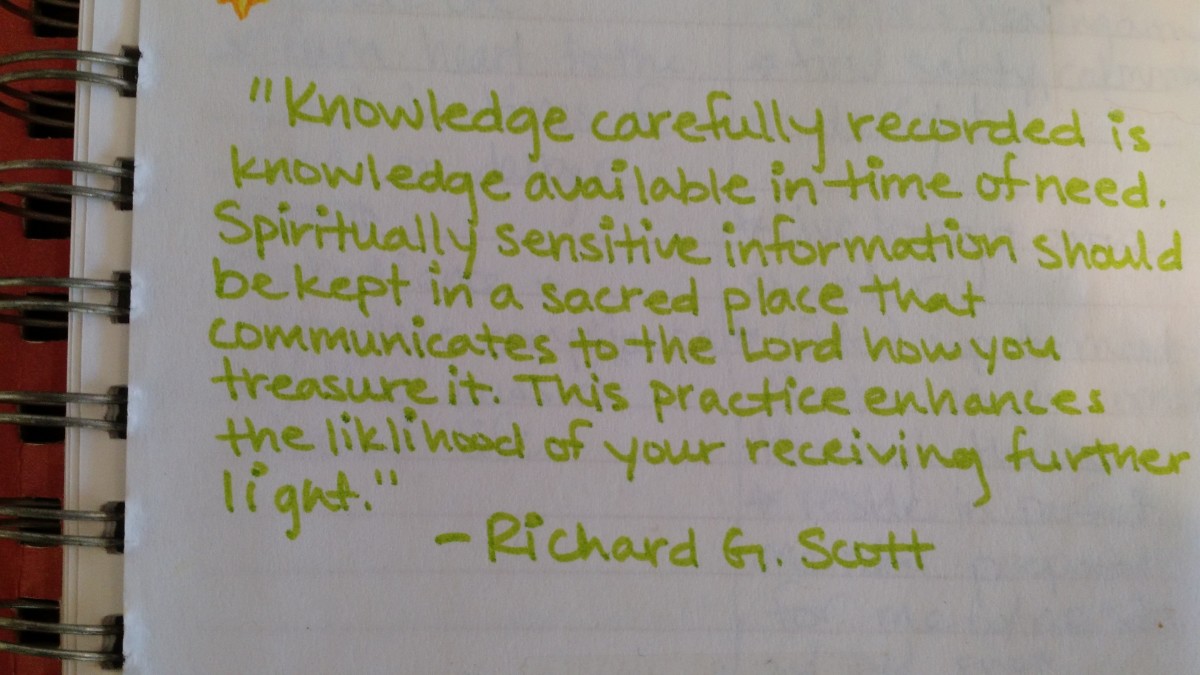 "Knowledge carefully recorded is
knowledge available in time of need.
Spiritually sensitive information should
be kept in a sacred place that
communicates to the Lord how you
treasure it. This practice enhances
the liklihood of your receiving further
light."
- Richard G. Scott